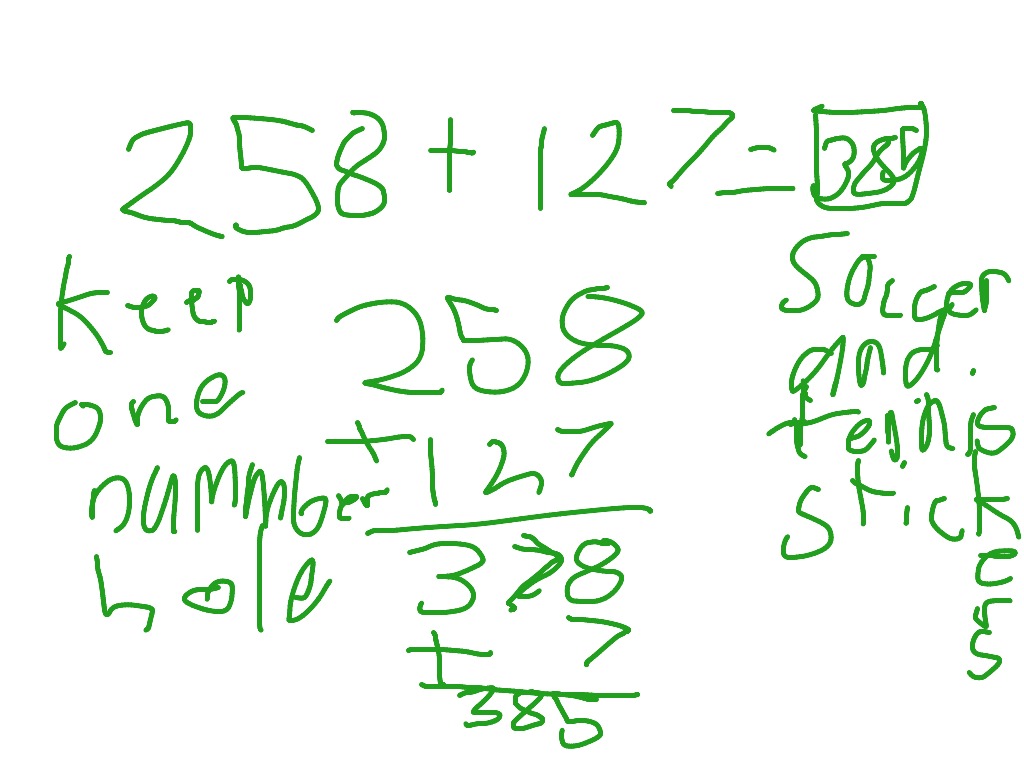 258 + 127 = 385
Keep
one
number
hole
258
+127
378
+ 7
385
Soccer
and
tennis
stick
ers